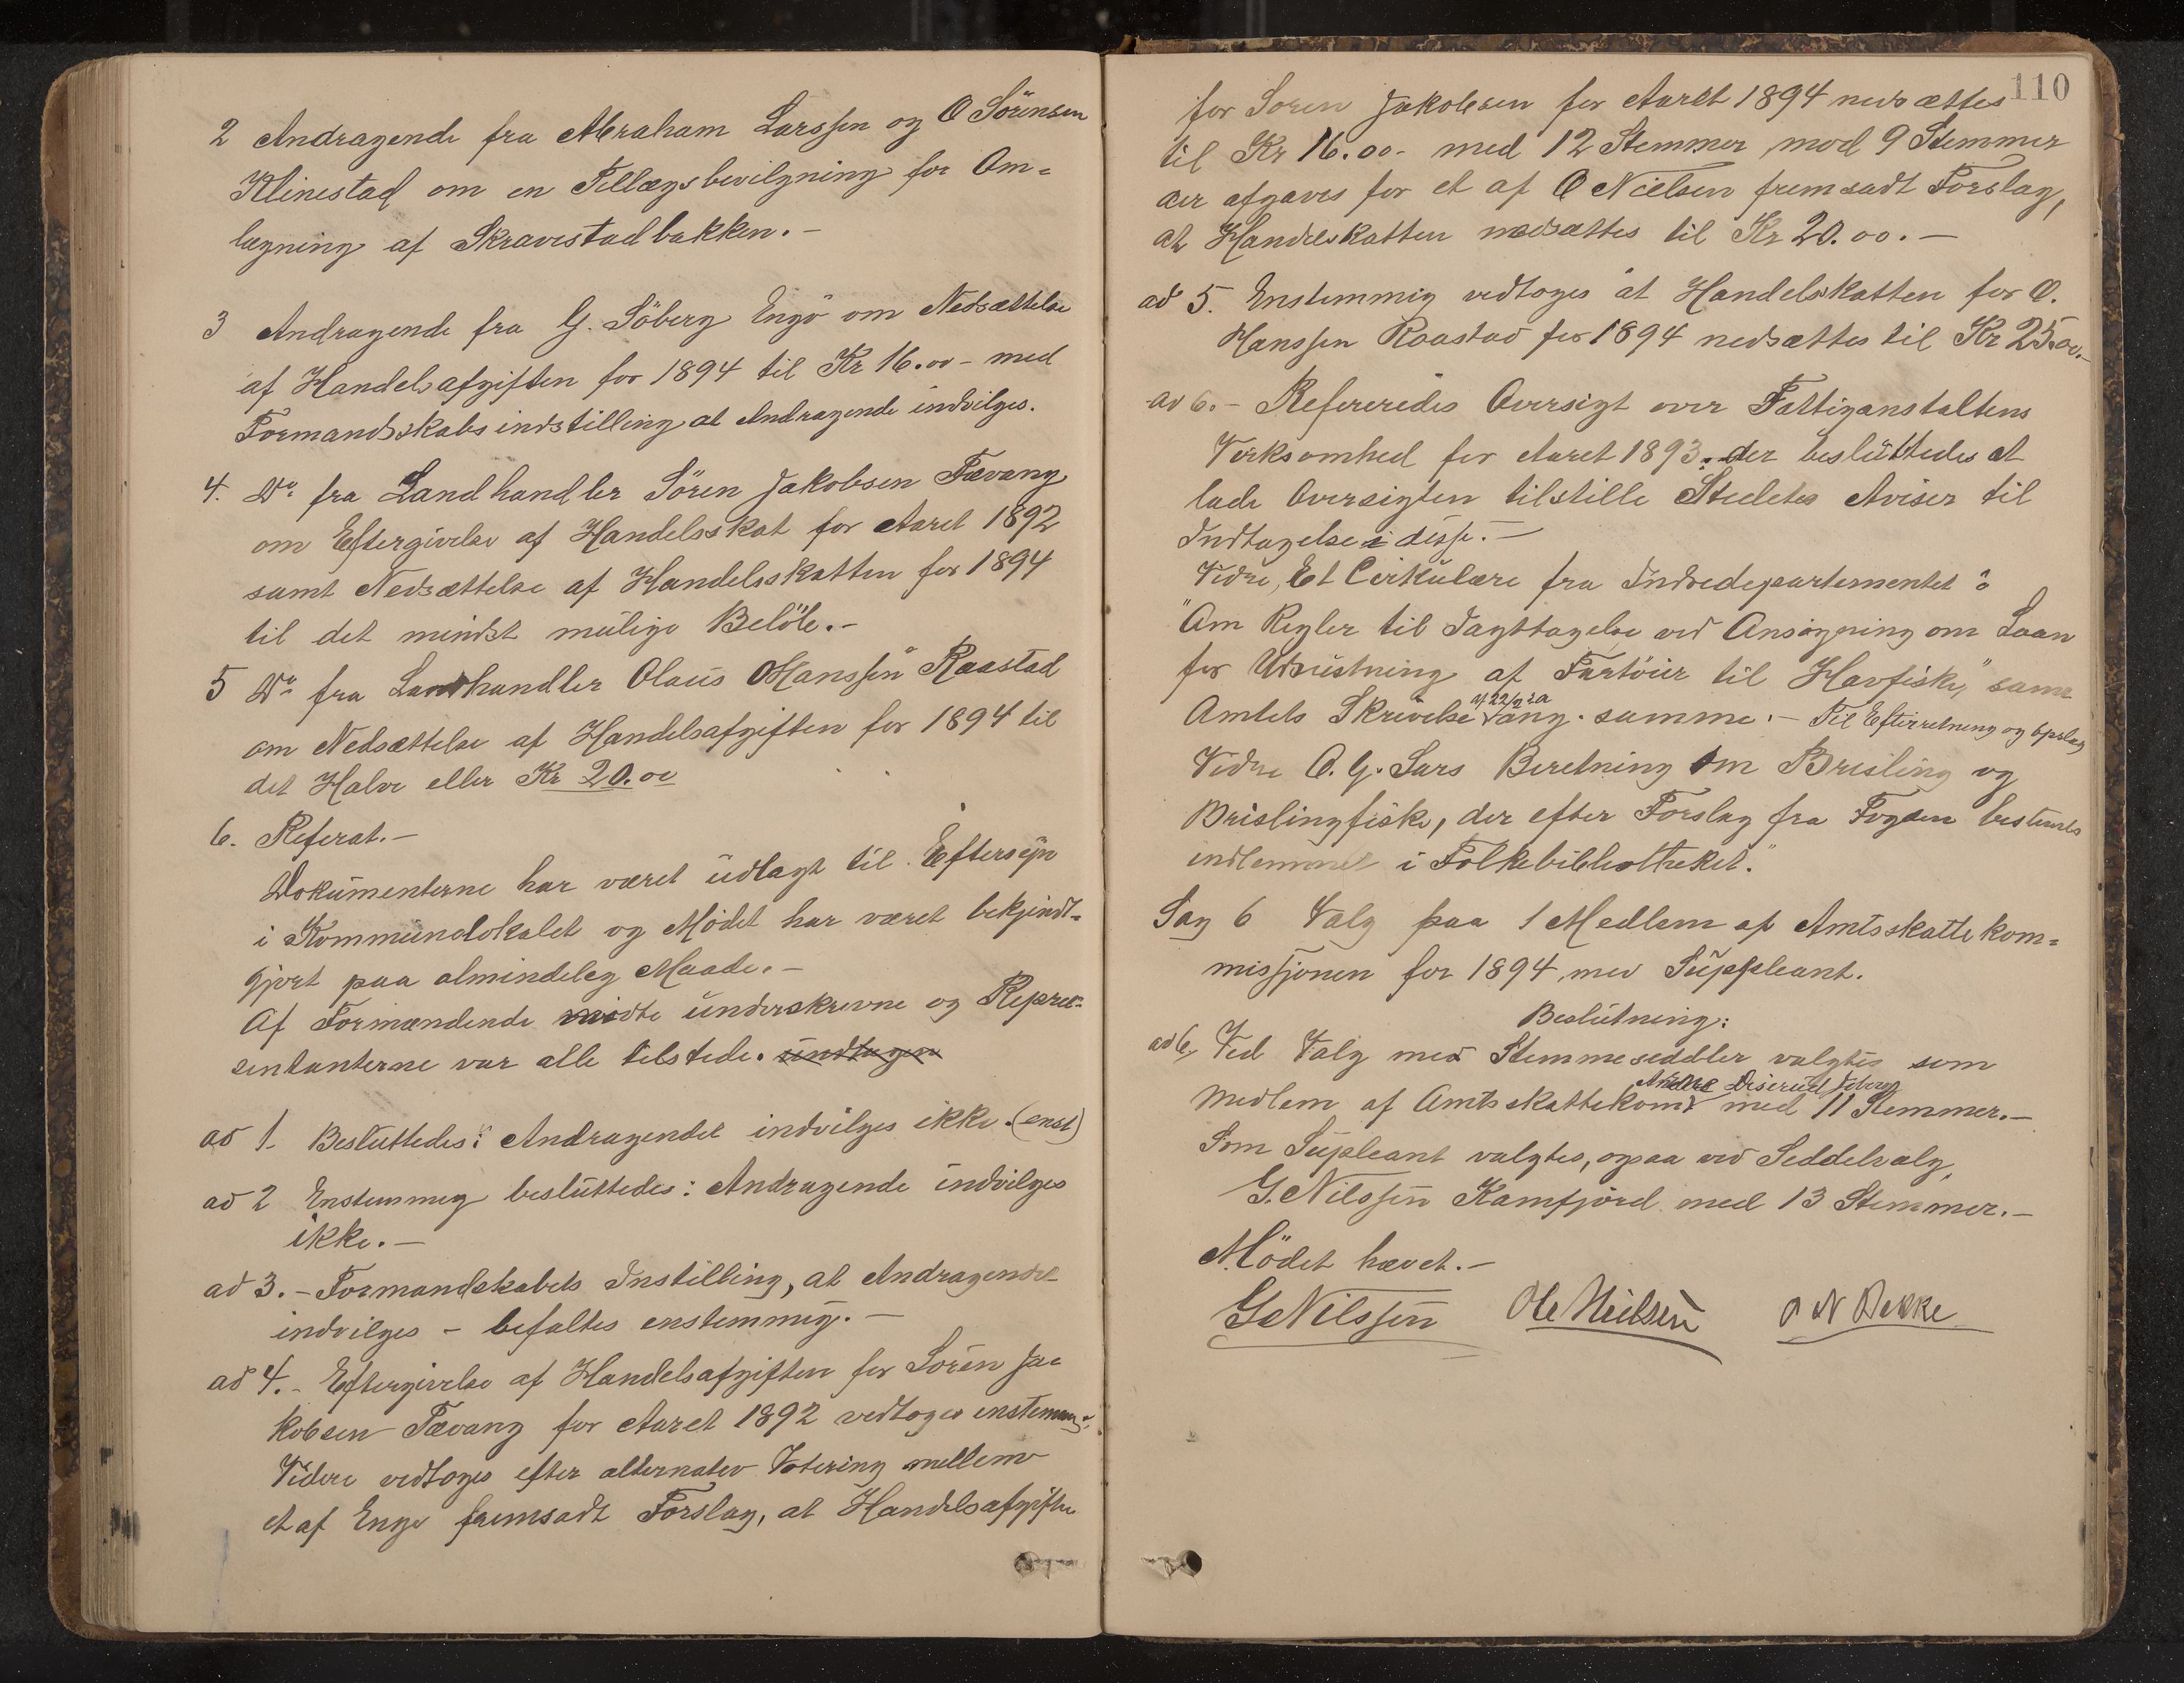 2 Andragende fra Abraham Larssen og O Sörensen
Klinestad om en Tillægsbevilgning for Om-
lægning af Skravestadbakken.-
3 Andragende fra G. Söberg Engö om Nedsættelse
af Handelsafgiften for 1894 til Kr 16.00 - med
Formandsskabsindstilling at Andragende indvilges.
4. Do fra Landhandler Sören Jakobsen Fævang
om Eftergivelse af Handelsskat for Aaret 1892
samt Nedsættelse af Handelsskatten for 1894
til det mindst mulige Belöb.-
5 Do fra Landhandler Olaus Hanssen Raastad
om Nedsættelse af Handelsafgiften for 1894 til
det Halve eller Kr 20.00
6. Referat.-
Dokumenterne har været udlagt til Eftersyn
i Kommunelokalet og Mödet har været bekjendt-
gjort paa almindelig Maade.-
Af Formændende mødte underskrevne og Repræ-
sentanterne var alle tilstede. undtagen
ad 1. Besluttedes: Andragendet indvilges ikke. (enst)
ad 2 Enstemmig besluttedes: Andragende indvilges
ikke.-
ad 3.- Formandskabets Instilling, at Andragendet
indvilges - befaltes enstemmig.-
ad 4.- Eftergivelse af Handelsafgiften for Sören Ja-
kobsen Fævang for Aaret 1892 vedtoges enstemmig.
Videre vedtoges efter alternativ Votering mellem
et af Engo fremsadt Forslag, at Handelsafgiften
110
for Soren Jakobsen for Aaret 1894 nedsættes
til Kr 16.00- med 12 Stemmer, mod 9 Stemmer
der afgaves for et af O Nielsen fremsadt Forslag,
at Handelskatten nedsættes til Kr 20.00.-
ad 5. Enstemmig vedtoges at Handelskatten for O.
Hanssen Raastad for 1894 nedsættes til Kr 25.00.-
ad 6.- Refereredes Oversigt over Fattiganstaltens
Virksomhed for Aaret 1893. der besluttedes at
lade Oversigten tilstille Stedets Aviser til
Indtagelse i disse.-
Vidre, Et Cirkulære fra Indredepartementet :
"Om Regler til Iagttagelse ved Ansögning om Laan
for Udrustning af Fartöier til Havfiske," samt
Amtets Skrivelse af 22/2 ang. samme.- Til Efterretning og Opslag
Vidre O. G. Sars Beretning om Brisling og
Brislingfiske, der efter Forslag fra Fogden bestemtes
indlemmet i Folkebibliotheket."
Sag 6 Valg paa 1 Medlem af Amtsskattekom-
missjonen for 1894, med Suppleant.
Beslutning:
ad 6, Ved Valg med Stemmeseddler valgtes som
Medlem af Amtsskattekom. Anders med 11 Stemmer.-
Som Supleant valgtes, ogsaa ved Seddelvalg,
G. Nilssen Kamfjord med 13 Stemmer.-
Mödet hævet.-
G Nilssen Ole Nielsen O N Bekke